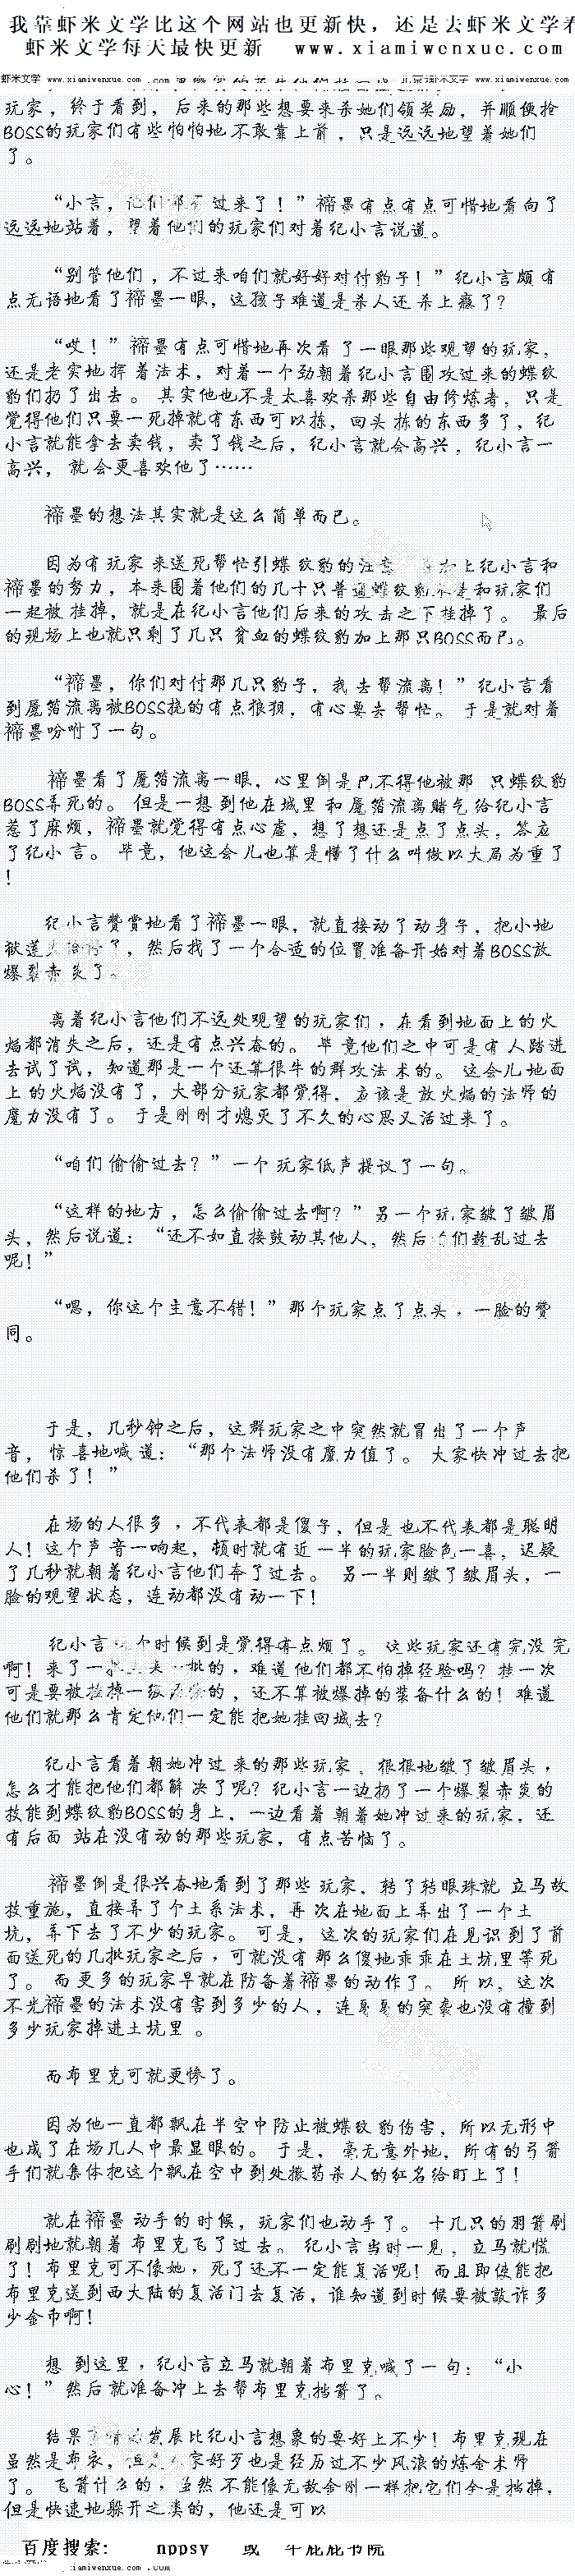 我靠虾米文学比这个网站也更新快，还是去虾米文学看
虾米文学每天最快更新 www.xiamiwenxue.com
虾米文学 www.xiamiwenxue.com
玩家，终于看到，后来的那些想要来杀她们领奖励，并顺便抢
BOSS的玩家们有些怕怕地不敢靠上前，只是远远地望着她们
了。
“小言，他们都不过来了！”禘墨有点有点可惜地看向了
远远地站着，望着他们的玩家们对着纪小言说道。
“别管他们，不过来咱们就好好对付豹子！”纪小言颇有
点无语地看了禘墨一眼，这孩子难道是杀人还杀上瘾了？
“哎！”禘墨有点可惜地再次看了一眼那些观望的玩家，
还是老实地挥着法术，对着一个劲朝着纪小言围攻过来的蝶纹
豹们扔了出去。其实他也不是太喜欢杀那些自由修炼者，只是
觉得他们只要一死掉就有东西可以拣，回头拣的东西多了，纪
小言就能拿去卖钱，卖了钱之后，纪小言就会高兴，纪小言一
高兴，就会更喜欢他了……
禘墨的想法其实就是这么简单而已。
因为有玩家来送死帮忙引蝶纹豹的注意，再加上纪小言和
禘墨的努力，本来围着他们的几十只普通蝶纹豹不是和玩家们
一起被挂掉，就是在纪小言他们后来的攻击之下挂掉了。最后
的现场上也就只剩了几只贫血的蝶纹豹加上那只BOSS而已。
“禘墨，你们对付那几只豹子，我去帮流离！”纪小言看
到魇箔流离被BOSS挠的有点狼狈，有心要去帮忙。于是就对着
禘墨吩咐了一句。
禘墨看了魇箔流离一眼，心里倒是巴不得他被那只蝶纹豹
BOSS弄死的。但是一想到他在城里和魇箔流离赌气给纪小言
惹了麻烦，禘墨就觉得有点心虚，想了想还是点了点头，答应
了纪小言。毕竟，他这会儿也算是懂了什么叫做以大局为重了
！
纪小言赞赏地看了禘墨一眼，就直接动了动身子，把小地
狱莲火给停了，然后找了一个合适的位置准备开始对着BOSS放
爆裂赤炎了。
离着纪小言他们不远处观望的玩家们，在看到地面上的火
焰都消失之后，还是有点兴奋的。毕竟他们之中可是有人踏进
去试了试，知道那是一个还算很牛的群攻法术的。这会儿地面
上的火焰没有了，大部分玩家都觉得，应该是放火焰的法师的
魔力没有了。于是刚刚才熄灭了不久的心思又活过来了。
“咱们偷偷过去？”一个玩家低声提议了一句。
“这样的地方，怎么偷偷过去啊？”另一个玩家皱了皱眉
头，然后说道：“还不如直接鼓动其他人，然后咱们趁乱过去
呢！”
“嗯，你这个主意不错！”那个玩家点了点头，一脸的赞
同。
于是，几秒钟之后，这群玩家之中突然就冒出了一个声
音，惊喜地喊道：“那个法师没有魔力值了。大家快冲过去把
他们杀了！”
在场的人很多，不代表都是傻子，但是也不代表都是聪明
人！这个声音一响起，顿时就有近一半的玩家脸色一喜，迟疑
了几秒就朝着纪小言他们奔了过去。另一半则皱了皱眉头，一
脸的观望状态，连动都没有动一下！
纪小言这个时候到是觉得有点烦了。这些玩家还有完没完
啊！来了一批又来一批的，难道他们都不怕掉经验吗？挂一次
可是要被挂掉一级经验的，还不算被爆掉的装备什么的！难道
他们就那么肯定他们一定能把她挂回城去？
纪小言看着朝她冲过来的那些玩家，狠狠地皱了皱眉头，
怎么才能把他们都解决了呢？纪小言一边扔了一个爆裂赤炎的
技能到蝶纹豹BOSS的身上，一边看着朝着她冲过来的玩家，还
有后面站在没有动的那些玩家，有点苦恼了。
禘墨倒是很兴奋地看到了那些玩家，转了转眼珠就立马故
技重施，直接弄了个土系法术，再次在地面上弄出了一个土
坑，弄下去了不少的玩家。可是，这次的玩家们在见识到了前
面送死的几批玩家之后，可就没有那么傻地乖乖在土坑里等死
了。而更多的玩家早就在防备着禘墨的动作了。所以，这次
不光禘墨的法术没有害到多少的人，连身身的突袭也没有撞到
多少玩家掉进土坑里。
而布里克可就更惨了。
因为他一直都飘在半空中防止被蝶纹豹伤害，所以无形中
也成了在场几人中最显眼的。于是，毫无意外地，所有的弓箭
手们就集体把这个飘在空中到处撒药杀人的红名给盯上了！
就在禘墨动手的时候，玩家们也动手了。十几只的羽箭刷
刷刷地就朝着布里克飞了过去。纪小言当时一见，立马就慌
了！布里克可不像她，死了还不一定能复活呢！而且即使能把
布里克送到西大陆的复活门去复活，谁知道到时候要被敲诈多
少金币啊！
想到这里，纪小言立马就朝着布里克喊了一句：“小
心！”然后就准备冲上去帮布里克挡箭了。
结果事情的发展比纪小言想象的要好上不少！布里克现在
虽然是布衣，但是人家好歹也是经历过不少风浪的炼金术师
了。飞箭什么的，虽然不能像无敌金刚一样把它们全是挡掉，
但是快速地躲开之类的，他还是可以
百度搜索： nppsy 或 牛屁屁书院
www.xiamiwenxue.com